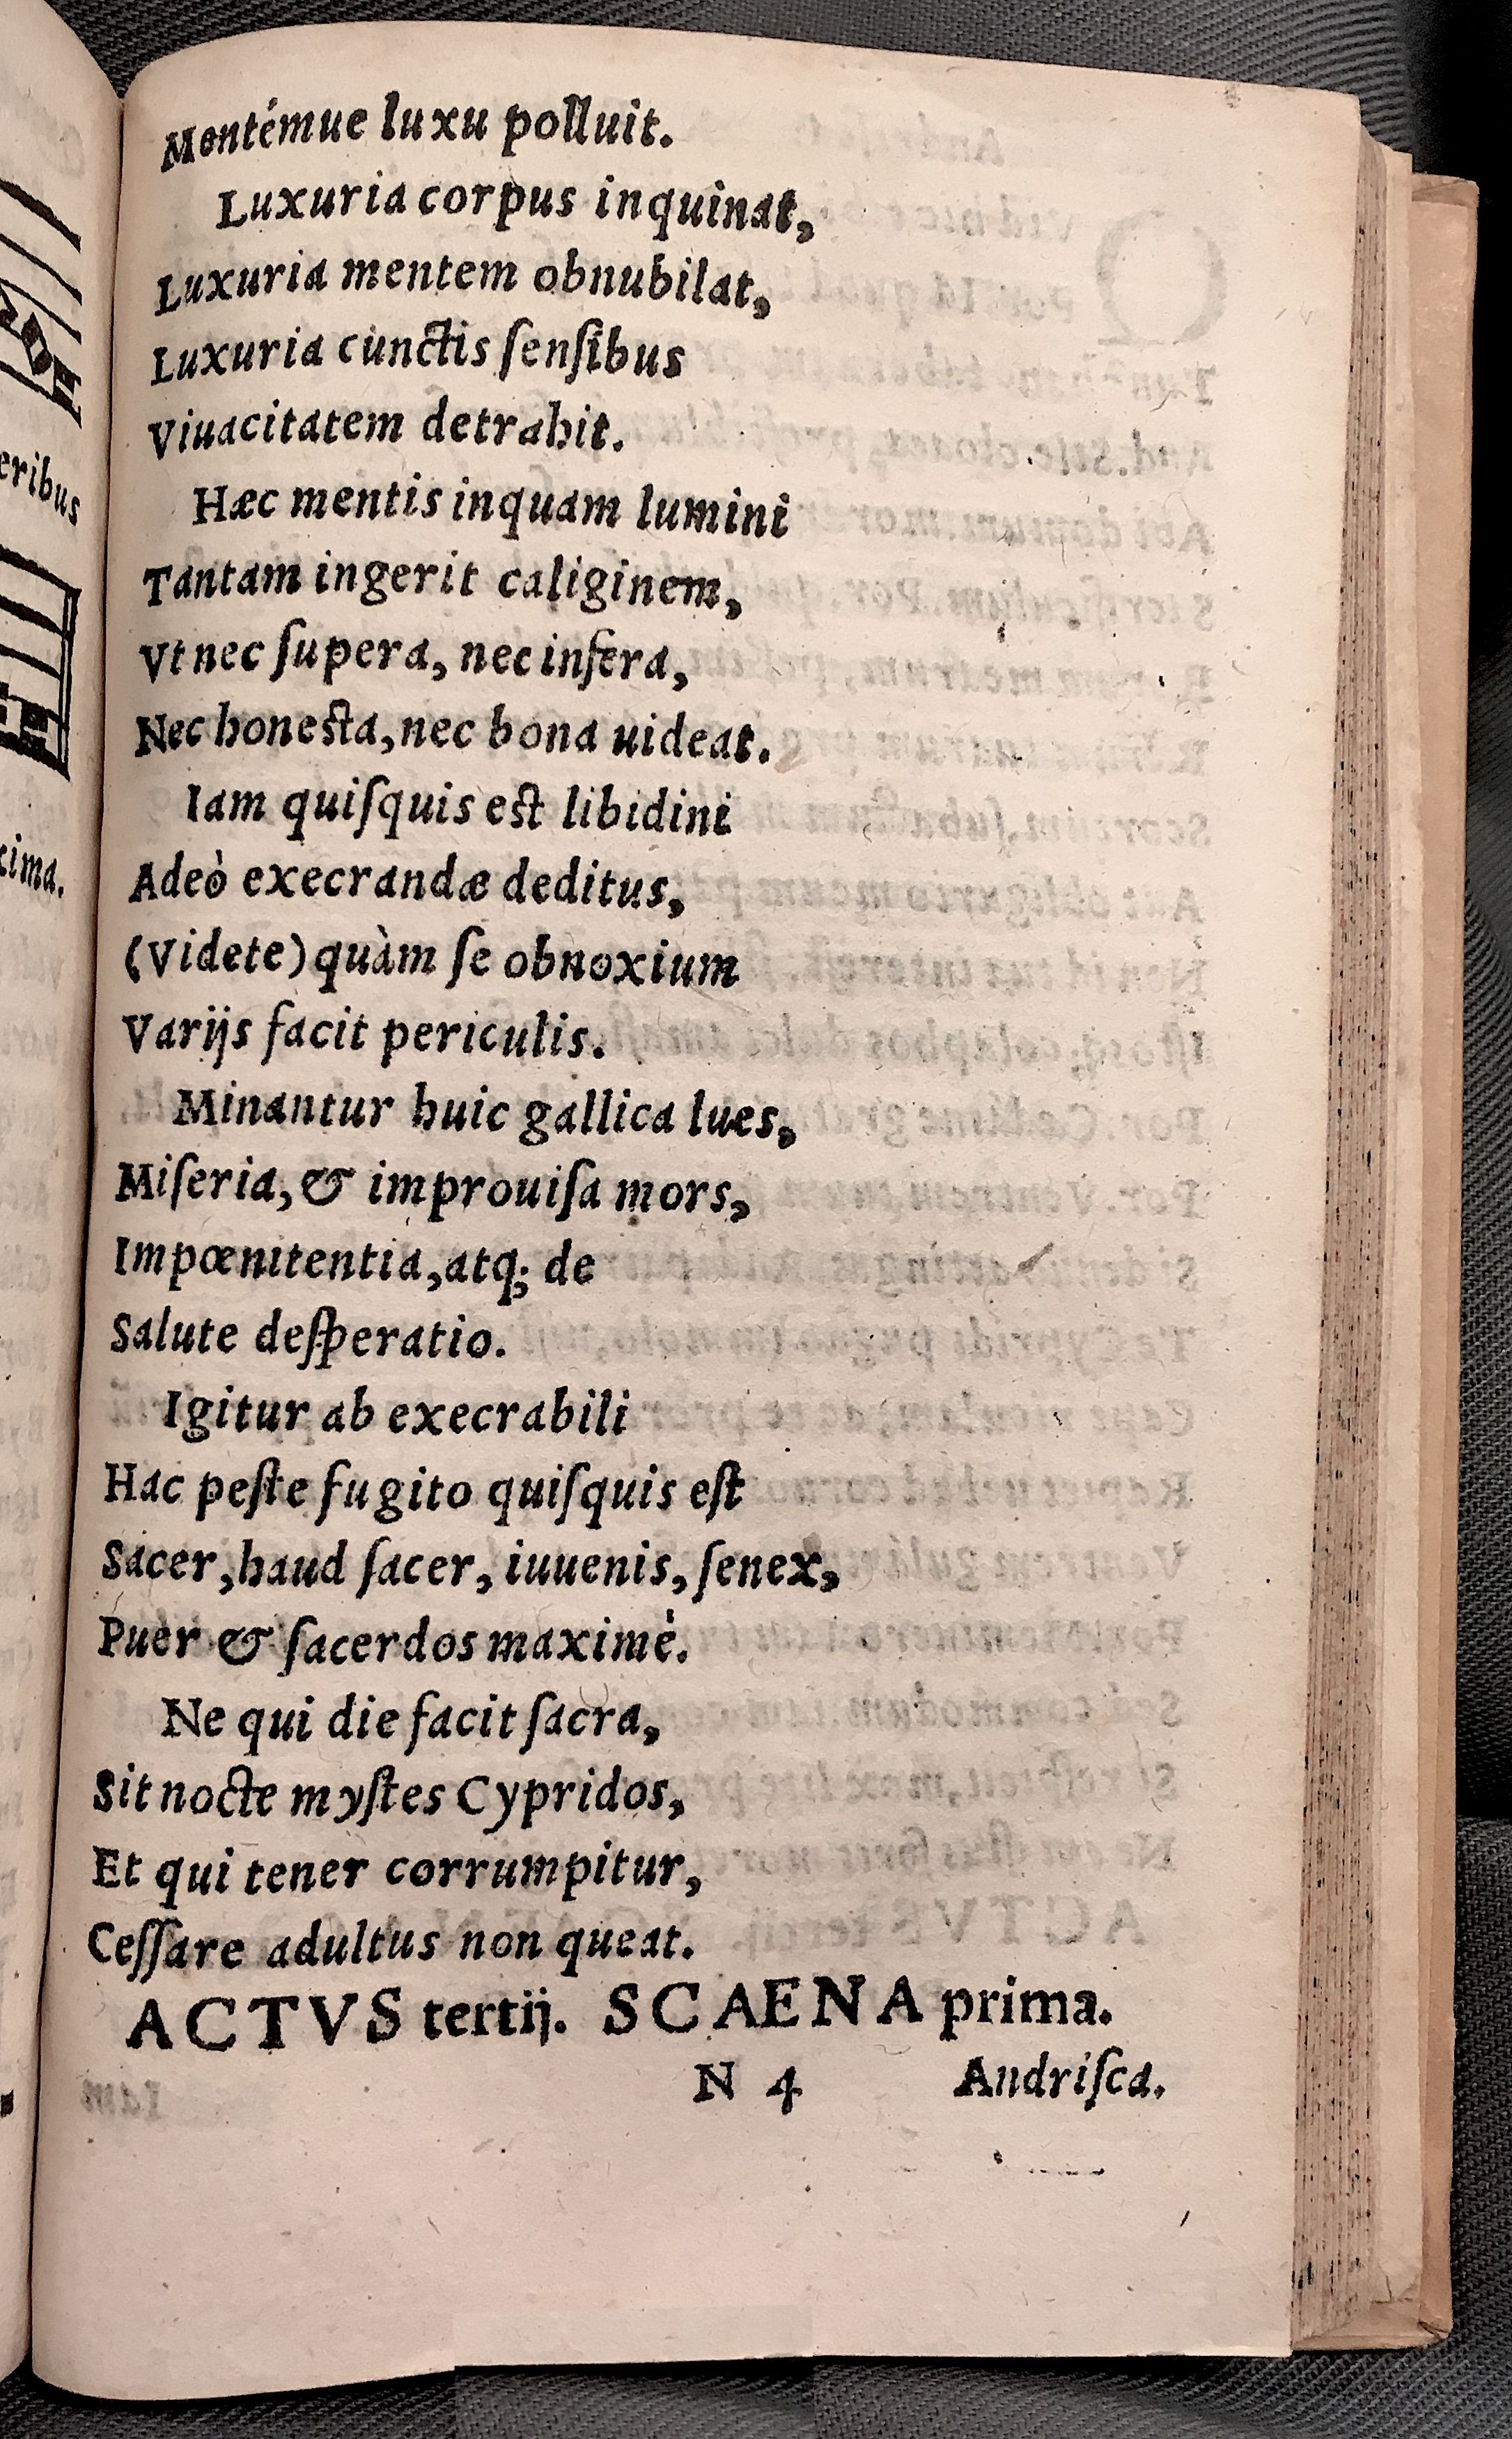 eribus
cima.
Mentémue luxu polluit.
Luxuria corpus inquinat,
Luxuria mentem obnubilat,
Luxuria cunctis ſenſibus
Viuacitatem detrahit.
Hæc mentis inquam lumini
Tantam ingerit caliginem,
Vt nec ſupera, nec infera,
Nec honesta, nec bona uideat.
Iam quiſquis est libidini
Adeò execrandæ deditus,
(Videte) quàm ſe obnoxium
Varijs facit periculis.
Minantur huic gallica lues,
Miſeria, & improuiſa mors,
Impœnitentia, atq; de
Salute deſperatio.
Igitur ab execrabili
Hac peſte fugito quiſquis eſt
Sacer, haud ſacer, iuuenis, ſenex,
Puer & ſacerdos maximè.
Ne qui die facit ſacra,
Sit nocte myſtes Cypridos,
Et qui tener corrumpitur,
Ceſſare adultus non queat.
ACTVS tertij. SCAENA prima.
N 4 Andriſca.